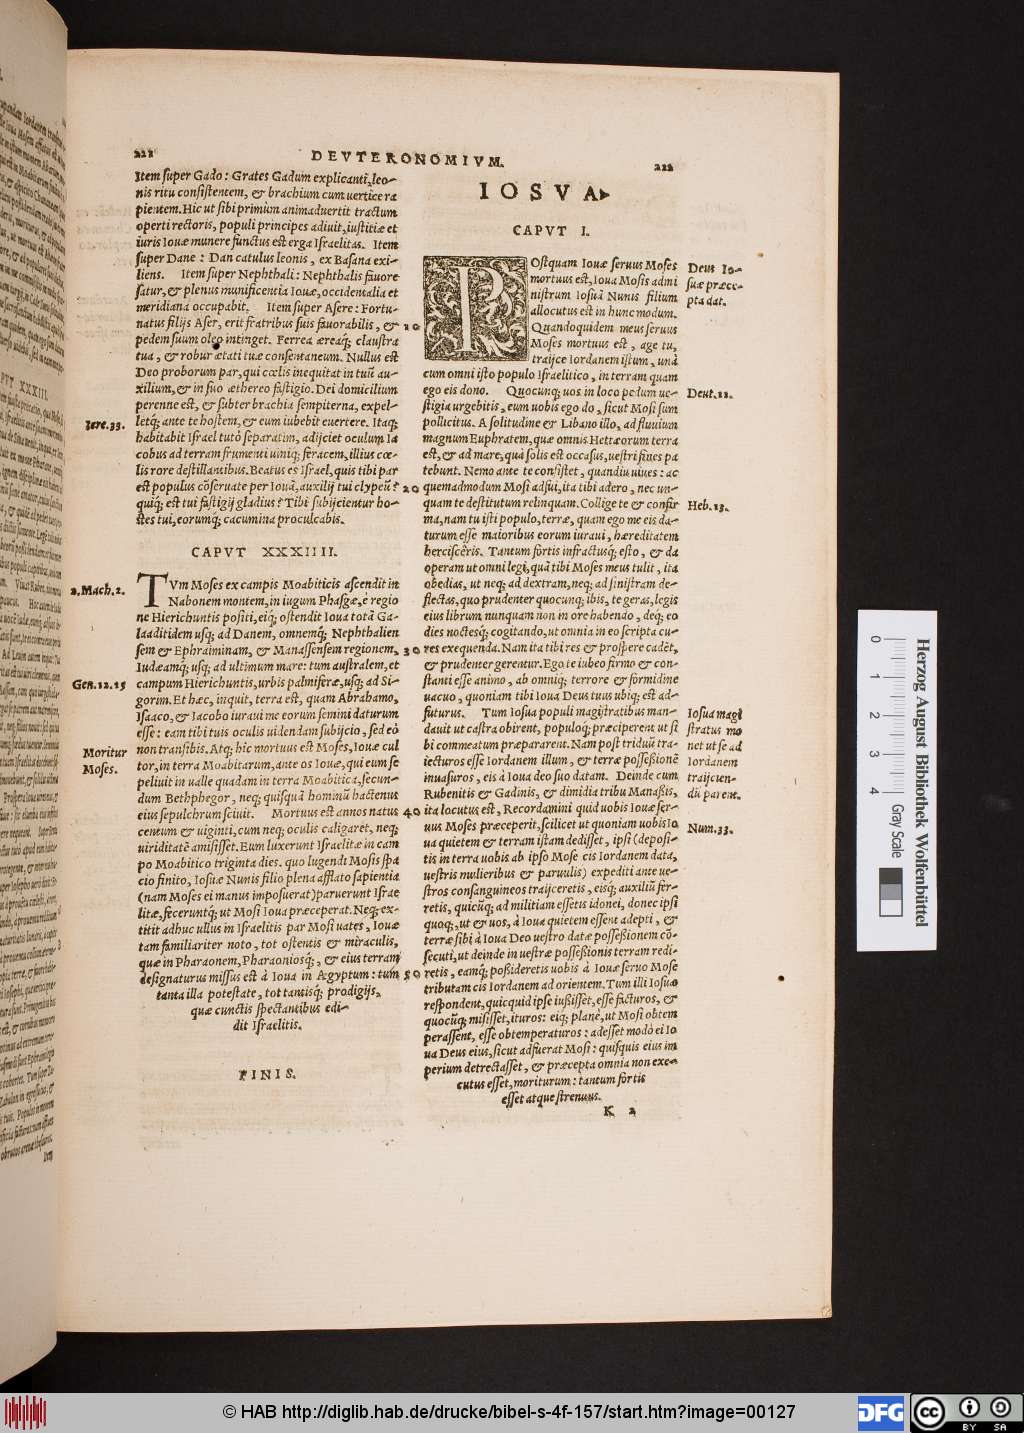 221
DEVTERONOMIVM.
222
Item super Gado: Grates Gadum explicanti, leo-
nis ritu consistentem, & brachium cum uertice ra
pientem. Hic ut sibi primùm animaduertit tractum
operti rectoris, populi principes adiuit, iustitiæ et
iuris Iouæ munere functus est erga Israelitas. Item
super Dane: Dan catulus leonis, ex Basana exi-
liens. Item super Nephthali: Nephthalis fauore
satur, & plenus munificentia Iouæ, occidentalia et
meridiana occupabit. Item super Asere: Fortu-
natus filijs Aser, erit fratribus suis fauorabilis, &
pedem suum oleo intinget. Ferrea æreaq; claustra
tua, & robur ætati tuæ consentaneum. Nullus est
Deo proborum par, qui cœlis inequitat in tuũ au-
xilium, & in suo æthereo fastigio. Dei domicilium
perenne est, & subter brachia sempiterna, expel-
letq; ante te hostem, & eum iubebit euertere. Itaq;
habitabit Israel tutò separatim, adijciet oculum Ia
cobus ad terram frumenti uiniq; feracem, illius cœ-
lis rore destillantibus. Beatus es Israel, quis tibi par
est populus cõseruate per Iouã, auxilij tui clypeũ?
quiq; est tui fastigij gladius? Tibi subijcientur ho-
stes tui, eorumq; cacumina proculcabis.
Iere.33.
CAPVT XXXIIII.
TVm Moses ex campis Moabiticis ascendit in
Nabonem montem, in iugum Phasgæ, è regio
ne Hierichuntis positi, eiq; ostendit Ioua totã Ga-
laaditidem usq; ad Danem, omnemq; Nephthalien
sem & Ephraiminam, & Manassensem regionem,
Iudæamq; usq; ad ultimum mare: tum australem, et
campum Hierichuntis, urbis palmiferæ, usq; ad Si-
gorim. Et hæc, inquit, terra est, quam Abrahamo,
Isaaco, & Iacobo iuraui me eorum semini daturum
esse: eam tibi tuis oculis uidendam subijcio, sed eò
non transibis. Atq; hic mortuus est Moses, Iouæ cul
tor, in terra Moabitarum, ante os Iouæ, qui eum se
peliuit in ualle quadam in terra Moabitica, secun-
dum Bethphegor, neq; quisquã hominũ hactenus
eius sepulchrum sciuit. Mortuus est annos natus
centum & uiginti, cum neq; oculis caligaret, neq;
uiriditatẽ amisisset. Eum luxerunt Israelitæ in cam
po Moabitico triginta dies. quo lugendi Mosis spa
cio finito, Iosuæ Nunis filio plena afflato sapientia
(nam Moses ei manus imposuerat) paruerunt Israe
litæ, feceruntq; ut Mosi Ioua præceperat. Neq; ex-
titit adhuc ullus in Israelitis par Mosi uates, Iouæ
tam familiariter noto, tot ostentis & miraculis,
quæ in Pharaonem, Pharaoniosq;, & eius terram
designaturus missus est à Ioua in Aegyptum: tum
tanta illa potestate, tot tantisq; prodigijs,
quæ cunctis spectantibus edi-
dit Israelitis.
FINIS.
2.Mach.2.
Gen.12.15
Moritur
Moses.
10
20
30
40
50
IOSVA
CAPVT I.
POstquam Iouæ seruus Moses
mortuus est, Ioua Mosis admi
nistrum Iosuã Nunis filium
allocutus est in hunc modum.
Quandoquidem meus seruus
Moses mortuus est, age tu,
traijce Iordanem istum, unà
cum omni isto populo Israelitico, in terram quam
ego eis dono. Quocunq; uos in loco pedum ue-
stigia urgebitis, eum uobis ego do, sicut Mosi sum
pollicitus. A solitudine & Libano illo, ad fluuium
magnum Euphratem, quæ omnis Hettæorum terra
est, & ad mare, quà solis est occasus, uestri fines pa
tebunt. Nemo ante te consistet, quandiu uiues: ac
quemadmodum Mosi adfui, ita tibi adero, nec un-
quam te destitutum relinquam. Collige te & confir
ma, nam tu isti populo, terræ, quam ego me eis da-
turum esse maioribus eorum iuraui, hæreditatem
hercisceris. Tantum fortis infractusq; esto, & da
operam ut omni legi, quã tibi Moses meus tulit, ita
obedias, ut neq; ad dextram, neq; ad sinistram de-
flectas, quo prudenter quocunq; ibis, te geras, legis
eius librum nunquam non in ore habendo, deq; eo
dies noctesq; cogitando, ut omnia in eo scripta cu-
res exequenda. Nam ita tibi res & prospere cadẽt,
& prudenter gerentur. Ego te iubeo firmo & con-
stanti esse animo, ab omniq; terrore & formidine
uacuo, quoniam tibi Ioua Deus tuus ubiq; est ad-
futurus. Tum Iosua populi magistratibus man-
dauit ut castra obirent, populoq; præciperent ut si
bi commeatum præpararent. Nam post triduũ tra-
iecturos esse Iordanem illum, & terræ possessionẽ
inuasuros, eis à Ioua deo suo datam. Deinde cum
Rubenitis & Gadinis, & dimidia tribu Manassis,
ita locutus est, Recordamini quid uobis Iouæ ser-
uus Moses præceperit, scilicet ut quoniam uobis Io
ua quietem & terram istam dedisset, ipsi (deposi-
tis in terra uobis ab ipso Mose cis Iordanem data,
uestris mulieribus & paruulis) expediti ante ue-
stros consanguineos traijceretis, eisq; auxiliũ fer-
retis, quicũq; ad militiam essetis idonei, donec ipsi
quoq;, ut & uos, à Ioua quietem essent adepti, &
terræ sibi à Ioua Deo uestro datæ possessionem cõ-
secuti, ut deinde in uestræ possessionis terram redi-
retis, eamq; possideretis uobis à Iouæ seruo Mose
tributam cis Iordanem ad orientem. Tum illi Iosuæ
respondent, quicquid ipse iussisset, esse facturos, &
quocũq; misisset, ituros: eiq; planè, ut Mosi obtem
perassent, esse obtemperaturos: adesset modò ei Io
ua Deus eius, sicut adfuerat Mosi: quisquis eius im
perium detrectasset, & præcepta omnia non exe-
cutus esset, moriturum: tantum fortis
esset atque strenuus.
K 2
Deus Io-
suæ præce-
pta dat.
Deut.11.
Heb.13.
Iosua magi
stratus mo
net ut se ad
Iordanem
traijcien-
dũ parent.
Num.33.
0 1 2 3 4
Gray Scale
Herzog August Bibliothek Wolfenbüttel
© HAB http://diglib.hab.de/drucke/bibel-s-4f-157/start.htm?image=00127
DFG
cc
BY SA